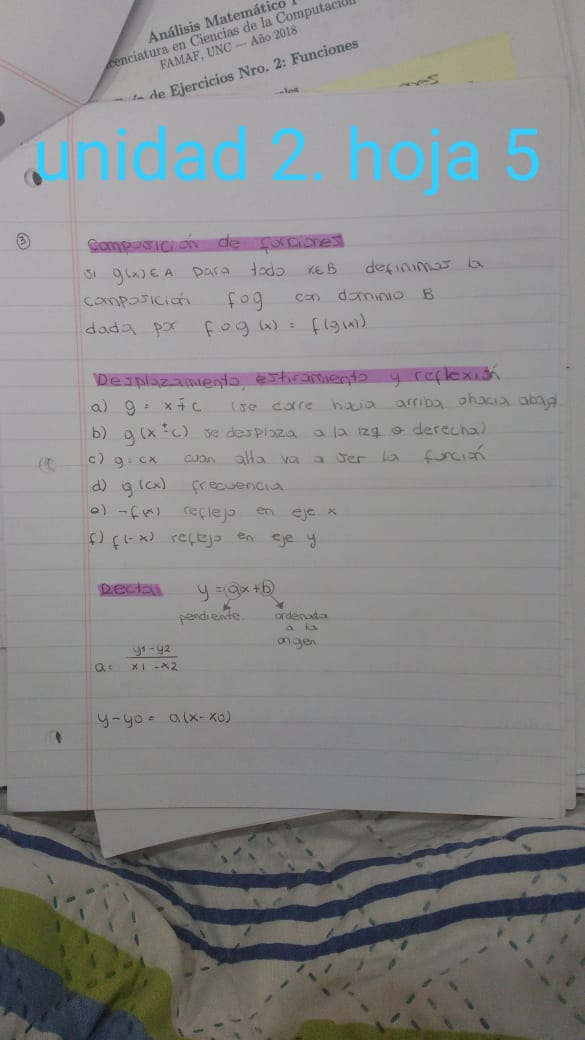 Análisis Matemático I
cenciatura en Ciencias de la Computación
FAMAF, UNC — Año 2018
de Ejercicios Nro. 2: Funciones
unidad 2. hoja 5
③
Composición de funciones
si g(x) ∈ A para todo x∈B definimos la
composición fog con dominio B
dada por f o g (x) = f(g(x))
Desplazamiento, estiramiento y reflexión
a) g = x ± c (se corre hacia arriba o hacia abajo)
b) g(x ± c) se desplaza a la izq o derecha)
c) g = cx cuan alta va a ser la función
d) g(cx) frecuencia
e) -f(x) reflejo en eje x
f) f(-x) reflejo en eje y
Recta y = ax+b
pendiente ordenada
a la
origen
a = y1-y2
x1-x2
y-y0 = a(x-x0)